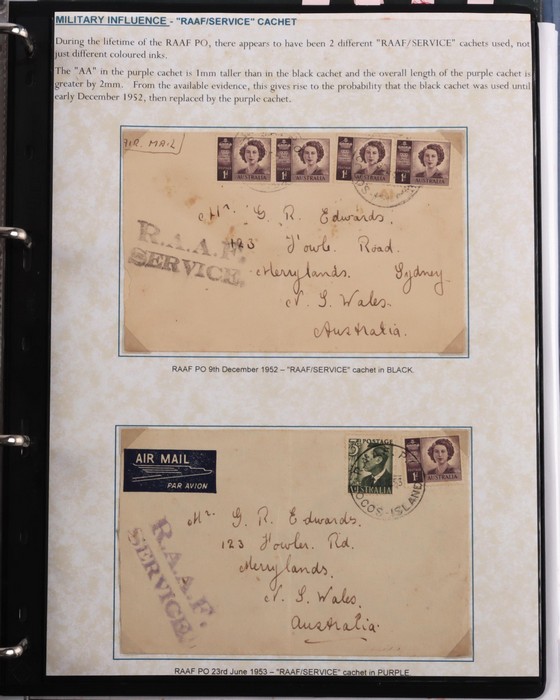 MILITARY INFLUENCE - "RAAF/SERVICE" CACHET
During the lifetime of the RAAF PO, there appears to have been 2 different "RAAF/SERVICE" cachets used, not
just different coloured inks.
The "AA" in the purple cachet is 1mm taller than in the black cachet and the overall length of the purple cachet is
greater by 2mm. From the available evidence, this gives rise to the probability that the black cachet was used until
early December 1952, then replaced by the purple cachet.
AIR MAIL
1D AUSTRALIA 1D AUSTRALIA 1D AUSTRALIA 1D AUSTRALIA
Mr. G. R. Edwards.
123 Fowle Road.
Merrylands. Sydney.
N. S. Wales.
Australia.
R.A.A.F.
SERVICE.
RAAF PO 9th December 1952 – "RAAF/SERVICE" cachet in BLACK.
AIR MAIL
PAR AVION
POSTAGE
AUSTRALIA
1D AUSTRALIA
COCOS-ISLAND
Mr. G. R. Edwards.
123 Fowler. Rd.
Merrylands.
N. S. Wales.
Australia.
R.A.A.F.
SERVICE.
RAAF PO 23rd June 1953 – "RAAF/SERVICE" cachet in PURPLE.